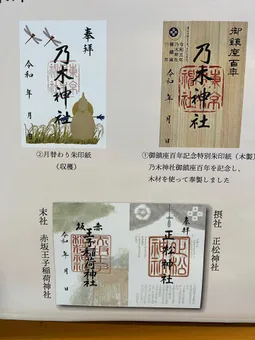 奉拝
乃木神社
令和 年 月 日
②月替わり朱印紙
(収穫)
御鎮座百年
乃木神社
令和 年 月 日
①御鎮座百年記念特別朱印紙(木製)
乃木神社御鎮座百年を記念し、
木材を使って奉製しました
摂社 正松神社
奉拝
正松神社
赤坂
王子稲荷神社
令和 年 月 日
末社 赤坂王子稲荷神社